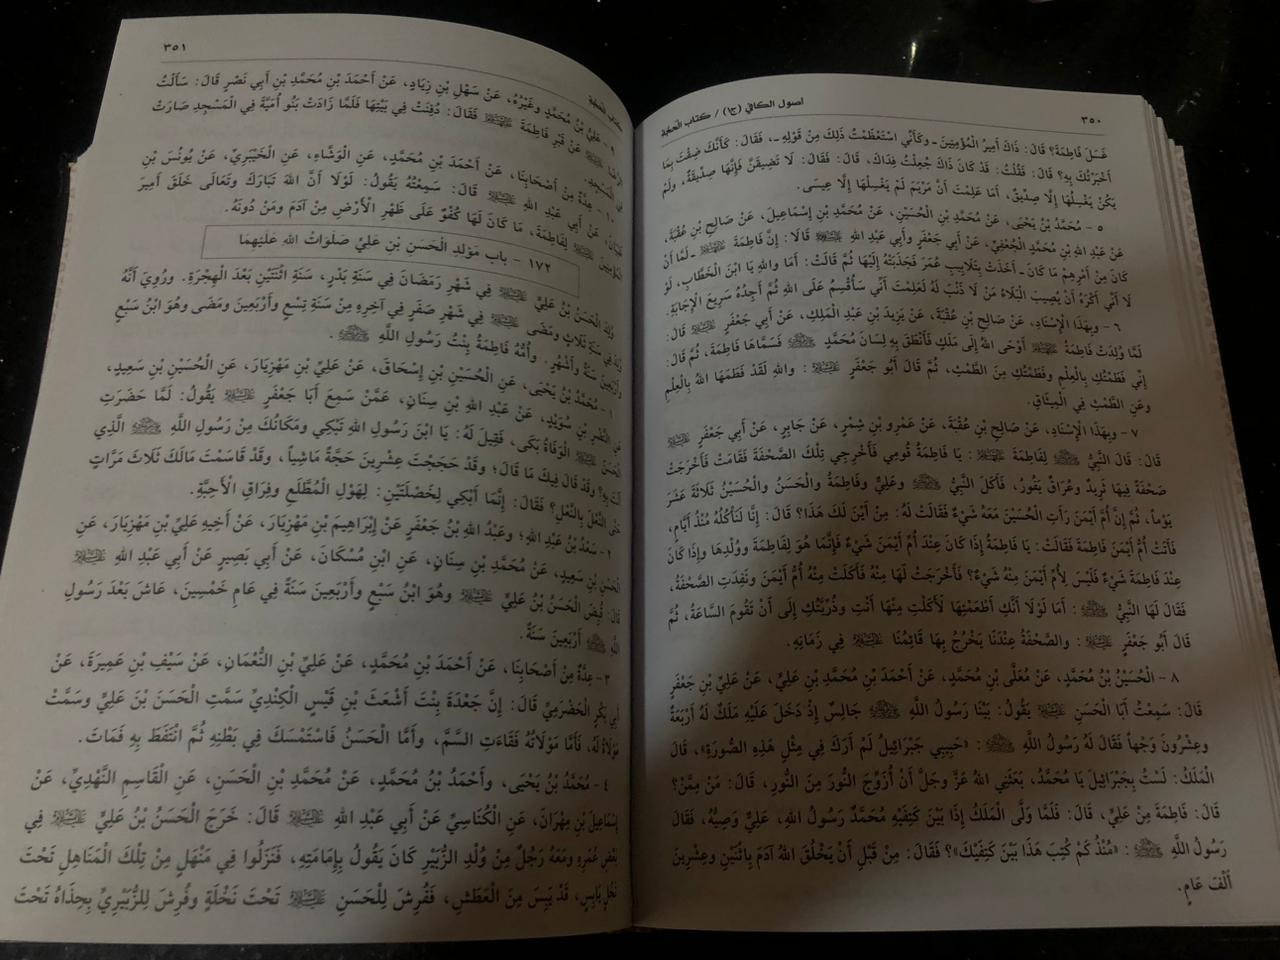 ٣٥٠
اصول الكافي (ج١) / كتاب الحجة
غَسَلَ فَاطِمَةَ؟ قَالَ: ذَاكَ أَمِيرُ الْمُؤْمِنِينَ ـ وكَأَنِّي اسْتَعْظَمْتُ ذَلِكَ مِنْ قَوْلِهِ ـ، فَقَالَ: كَأَنَّكَ ضِقْتَ بِمَا
أَخْبَرْتُكَ بِهِ؟ قَالَ: فَقُلْتُ: قَدْ كَانَ ذَاكَ جُعِلْتُ فِدَاكَ، قَالَ: فَقَالَ: لَا تَضِيقَنَّ فَإِنَّهَا صِدِّيقَةٌ، ولَمْ
يَكُنْ يَغْسِلُهَا إِلَّا صِدِّيقٌ، أَمَا عَلِمْتَ أَنَّ مَرْيَمَ لَمْ يَغْسِلْهَا إِلَّا عِيسَى.
٥ - مُحَمَّدُ بْنُ يَحْيَى، عَنْ مُحَمَّدِ بْنِ الْحُسَيْنِ، عَنْ مُحَمَّدِ بْنِ إِسْمَاعِيلَ، عَنْ صَالِحِ بْنِ عُقْبَةَ،
عَنْ عَبْدِ اللهِ بْنِ مُحَمَّدٍ الْجُعْفِيِّ، عَنْ أَبِي جَعْفَرٍ وأَبِي عَبْدِ اللهِ قَالَا: إِنَّ فَاطِمَةَ ـ لَمَّا أَنْ
كَانَ مِنْ أَمْرِهِمْ مَا كَانَ ـ أَخَذَتْ بِتَلَابِيبِ عُمَرَ فَجَذَبَتْهُ إِلَيْهَا ثُمَّ قَالَتْ: أَمَا واللهِ يَا ابْنَ الْخَطَّابِ، لَوْ
لَا أَنِّي أَكْرَهُ أَنْ يُصِيبَ الْبَلَاءُ مَنْ لَا ذَنْبَ لَهُ لَعَلِمْتَ أَنِّي سَأُقْسِمُ عَلَى اللهِ ثُمَّ أَجِدُهُ سَرِيعَ الْإِجَابَةِ.
٦ - وبِهَذَا الْإِسْنَادِ، عَنْ صَالِحِ بْنِ عُقْبَةَ، عَنْ يَزِيدَ بْنِ عَبْدِ الْمَلِكِ، عَنْ أَبِي جَعْفَرٍ قَالَ:
لَمَّا وُلِدَتْ فَاطِمَةُ أَوْحَى اللهُ إِلَى مَلَكٍ فَأَنْطَقَ بِهِ لِسَانَ مُحَمَّدٍ فَسَمَّاهَا فَاطِمَةَ، ثُمَّ قَالَ:
إِنِّي فَطَمْتُكِ بِالْعِلْمِ وفَطَمْتُكِ مِنَ الطَّمْثِ، ثُمَّ قَالَ أَبُو جَعْفَرٍ : واللهِ لَقَدْ فَطَمَهَا اللهُ بِالْعِلْمِ
وعَنِ الطَّمْثِ فِي الْمِيثَاقِ.
٧ - وبِهَذَا الْإِسْنَادِ، عَنْ صَالِحِ بْنِ عُقْبَةَ، عَنْ عَمْرِو بْنِ شِمْرٍ، عَنْ جَابِرٍ، عَنْ أَبِي جَعْفَرٍ
قَالَ: قَالَ النَّبِيُّ لِفَاطِمَةَ : يَا فَاطِمَةُ قُومِي فَأَخْرِجِي تِلْكَ الصَّحْفَةَ فَقَامَتْ فَأَخْرَجَتْ
صَحْفَةً فِيهَا ثَرِيدٌ وعُرَاقٌ يَفُورُ، فَأَكَلَ النَّبِيُّ وعَلِيٌّ وفَاطِمَةُ والْحَسَنُ والْحُسَيْنُ ثَلَاثَةَ عَشَرَ
يَوْماً، ثُمَّ إِنَّ أُمَّ أَيْمَنَ رَأَتِ الْحُسَيْنَ مَعَهُ شَيْءٌ فَقَالَتْ لَهُ: مِنْ أَيْنَ لَكَ هَذَا؟ قَالَ: إِنَّا لَنَأْكُلُهُ مُنْذُ أَيَّامٍ،
فَأَتَتْ أُمُّ أَيْمَنَ فَاطِمَةَ فَقَالَتْ: يَا فَاطِمَةُ إِذَا كَانَ عِنْدَ أُمِّ أَيْمَنَ شَيْءٌ فَإِنَّمَا هُوَ لِفَاطِمَةَ ووُلْدِهَا وإِذَا كَانَ
عِنْدَ فَاطِمَةَ شَيْءٌ فَلَيْسَ لِأُمِّ أَيْمَنَ مِنْهُ شَيْءٌ؟ فَأَخْرَجَتْ لَهَا مِنْهُ فَأَكَلَتْ مِنْهُ أُمُّ أَيْمَنَ ونَفِدَتِ الصَّحْفَةُ،
فَقَالَ لَهَا النَّبِيُّ : أَمَا لَوْلَا أَنَّكِ أَطْعَمْتِهَا لَأَكَلْتِ مِنْهَا أَنْتِ وذُرِّيَّتُكِ إِلَى أَنْ تَقُومَ السَّاعَةُ، ثُمَّ
قَالَ أَبُو جَعْفَرٍ : والصَّحْفَةُ عِنْدَنَا يَخْرُجُ بِهَا قَائِمُنَا فِي زَمَانِهِ.
٨ - الْحُسَيْنُ بْنُ مُحَمَّدٍ، عَنْ مُعَلَّى بْنِ مُحَمَّدٍ، عَنْ أَحْمَدَ بْنِ مُحَمَّدِ بْنِ عَلِيٍّ، عَنْ عَلِيِّ بْنِ جَعْفَرٍ
قَالَ: سَمِعْتُ أَبَا الْحَسَنِ يَقُولُ: بَيْنَا رَسُولُ اللَّهِ جَالِسٌ إِذْ دَخَلَ عَلَيْهِ مَلَكٌ لَهُ أَرْبَعَةٌ
وعِشْرُونَ وَجْهاً فَقَالَ لَهُ رَسُولُ اللَّهِ : «حَبِيبِي جَبْرَائِيلُ لَمْ أَرَكَ فِي مِثْلِ هَذِهِ الصُّورَةِ»، قَالَ
الْمَلَكُ: لَسْتُ بِجَبْرَائِيلَ يَا مُحَمَّدُ، بَعَثَنِي اللهُ عَزَّ وجَلَّ أَنْ أُزَوِّجَ النُّورَ مِنَ النُّورِ، قَالَ: مَنْ مِمَّنْ؟
قَالَ: فَاطِمَةَ مِنْ عَلِيٍّ، قَالَ: فَلَمَّا وَلَّى الْمَلَكُ إِذَا بَيْنَ كَتِفَيْهِ مُحَمَّدٌ رَسُولُ اللهِ، عَلِيٌّ وَصِيُّهُ، فَقَالَ
رَسُولُ اللَّهِ : «مُنْذُ كَمْ كُتِبَ هَذَا بَيْنَ كَتِفَيْكَ»؟ فَقَالَ: مِنْ قَبْلِ أَنْ يَخْلُقَ اللهُ آدَمَ بِاثْنَيْنِ وعِشْرِينَ
أَلْفَ عَامٍ.
كتاب الحجة
٣٥١
٩ - عَلِيُّ بْنُ مُحَمَّدٍ وغَيْرُهُ، عَنْ سَهْلِ بْنِ زِيَادٍ، عَنْ أَحْمَدَ بْنِ مُحَمَّدِ بْنِ أَبِي نَصْرٍ قَالَ: سَأَلْتُ
عَنْ قَبْرِ فَاطِمَةَ فَقَالَ: دُفِنَتْ فِي بَيْتِهَا فَلَمَّا زَادَتْ بَنُو أُمَيَّةَ فِي الْمَسْجِدِ صَارَتْ
فِي الْمَسْجِدِ.
١٠ - عِدَّةٌ مِنْ أَصْحَابِنَا، عَنْ أَحْمَدَ بْنِ مُحَمَّدٍ، عَنِ الْوَشَّاءِ، عَنِ الْخَيْبَرِيِّ، عَنْ يُونُسَ بْنِ
ظَبْيَانَ، عَنْ أَبِي عَبْدِ اللهِ قَالَ: سَمِعْتُهُ يَقُولُ: لَوْلَا أَنَّ اللهَ تَبَارَكَ وتَعَالَى خَلَقَ أَمِيرَ
الْمُؤْمِنِينَ لِفَاطِمَةَ، مَا كَانَ لَهَا كُفْوٌ عَلَى ظَهْرِ الْأَرْضِ مِنْ آدَمَ ومَنْ دُونَهُ.
١٧٢ - باب مَوْلِدِ الْحَسَنِ بْنِ عَلِيٍّ صَلَوَاتُ اللهِ عَلَيْهِمَا
وُلِدَ الْحَسَنُ بْنُ عَلِيٍّ فِي شَهْرِ رَمَضَانَ فِي سَنَةِ بَدْرٍ، سَنَةِ اثْنَتَيْنِ بَعْدَ الْهِجْرَةِ. ورُوِيَ أَنَّهُ
وُلِدَ فِي سَنَةِ ثَلَاثٍ ومَضَى فِي شَهْرِ صَفَرٍ فِي آخِرِهِ مِنْ سَنَةِ تِسْعٍ وأَرْبَعِينَ ومَضَى وهُوَ ابْنُ سَبْعٍ
وأَرْبَعِينَ سَنَةً وأَشْهُرٍ. وأُمُّهُ فَاطِمَةُ بِنْتُ رَسُولِ اللَّهِ .
١ - مُحَمَّدُ بْنُ يَحْيَى، عَنِ الْحُسَيْنِ بْنِ إِسْحَاقَ، عَنْ عَلِيِّ بْنِ مَهْزِيَارَ، عَنِ الْحُسَيْنِ بْنِ سَعِيدٍ،
عَنِ النَّضْرِ بْنِ سُوَيْدٍ، عَنْ عَبْدِ اللهِ بْنِ سِنَانٍ، عَمَّنْ سَمِعَ أَبَا جَعْفَرٍ يَقُولُ: لَمَّا حَضَرَتِ
الْحَسَنَ الْوَفَاةُ بَكَى، فَقِيلَ لَهُ: يَا ابْنَ رَسُولِ اللهِ تَبْكِي ومَكَانُكَ مِنْ رَسُولِ اللَّهِ الَّذِي
أَنْتَ بِهِ؟ وقَدْ قَالَ فِيكَ مَا قَالَ؛ وقَدْ حَجَجْتَ عِشْرِينَ حَجَّةً مَاشِياً، وقَدْ قَاسَمْتَ مَالَكَ ثَلَاثَ مَرَّاتٍ
حَتَّى النَّعْلَ بِالنَّعْلِ؟ فَقَالَ: إِنَّمَا أَبْكِي لِخَصْلَتَيْنِ: لِهَوْلِ الْمُطَّلَعِ وفِرَاقِ الْأَحِبَّةِ.
٢ - سَعْدُ بْنُ عَبْدِ اللهِ؛ وعَبْدُ اللهِ بْنُ جَعْفَرٍ عَنْ إِبْرَاهِيمَ بْنِ مَهْزِيَارَ، عَنْ أَخِيهِ عَلِيِّ بْنِ مَهْزِيَارَ، عَنِ
الْحَسَنِ بْنِ سَعِيدٍ، عَنْ مُحَمَّدِ بْنِ سِنَانٍ، عَنِ ابْنِ مُسْكَانَ، عَنْ أَبِي بَصِيرٍ عَنْ أَبِي عَبْدِ اللهِ
قَالَ: قُبِضَ الْحَسَنُ بْنُ عَلِيٍّ وهُوَ ابْنُ سَبْعٍ وأَرْبَعِينَ سَنَةً فِي عَامِ خَمْسِينَ، عَاشَ بَعْدَ رَسُولِ
اللَّهِ أَرْبَعِينَ سَنَةً.
٣ - عِدَّةٌ مِنْ أَصْحَابِنَا، عَنْ أَحْمَدَ بْنِ مُحَمَّدٍ، عَنْ عَلِيِّ بْنِ النُّعْمَانِ، عَنْ سَيْفِ بْنِ عَمِيرَةَ، عَنْ
أَبِي بَكْرٍ الْحَضْرَمِيِّ قَالَ: إِنَّ جَعْدَةَ بِنْتَ أَشْعَثَ بْنِ قَيْسٍ الْكِنْدِيِّ سَمَّتِ الْحَسَنَ بْنَ عَلِيٍّ وسَمَّتْ
مَوْلَاةً لَهُ، فَأَمَّا مَوْلَاتُهُ فَقَاءَتِ السَّمَّ، وأَمَّا الْحَسَنُ فَاسْتَمْسَكَ فِي بَطْنِهِ ثُمَّ انْتَفَطَ بِهِ فَمَاتَ.
٤ - مُحَمَّدُ بْنُ يَحْيَى، وأَحْمَدُ بْنُ مُحَمَّدٍ، عَنْ مُحَمَّدِ بْنِ الْحَسَنِ، عَنِ الْقَاسِمِ النَّهْدِيِّ، عَنْ
إِسْمَاعِيلَ بْنِ مِهْرَانَ، عَنِ الْكُنَاسِيِّ عَنْ أَبِي عَبْدِ اللهِ قَالَ: خَرَجَ الْحَسَنُ بْنُ عَلِيٍّ فِي
بَعْضِ عُمَرِهِ ومَعَهُ رَجُلٌ مِنْ وُلْدِ الزُّبَيْرِ كَانَ يَقُولُ بِإِمَامَتِهِ، فَنَزَلُوا فِي مَنْهَلٍ مِنْ تِلْكَ الْمَنَاهِلِ تَحْتَ
نَخْلٍ يَابِسٍ، قَدْ يَبِسَ مِنَ الْعَطَشِ، فَفُرِشَ لِلْحَسَنِ تَحْتَ نَخْلَةٍ وفُرِشَ لِلزُّبَيْرِيِّ بِحِذَاهُ تَحْتَ